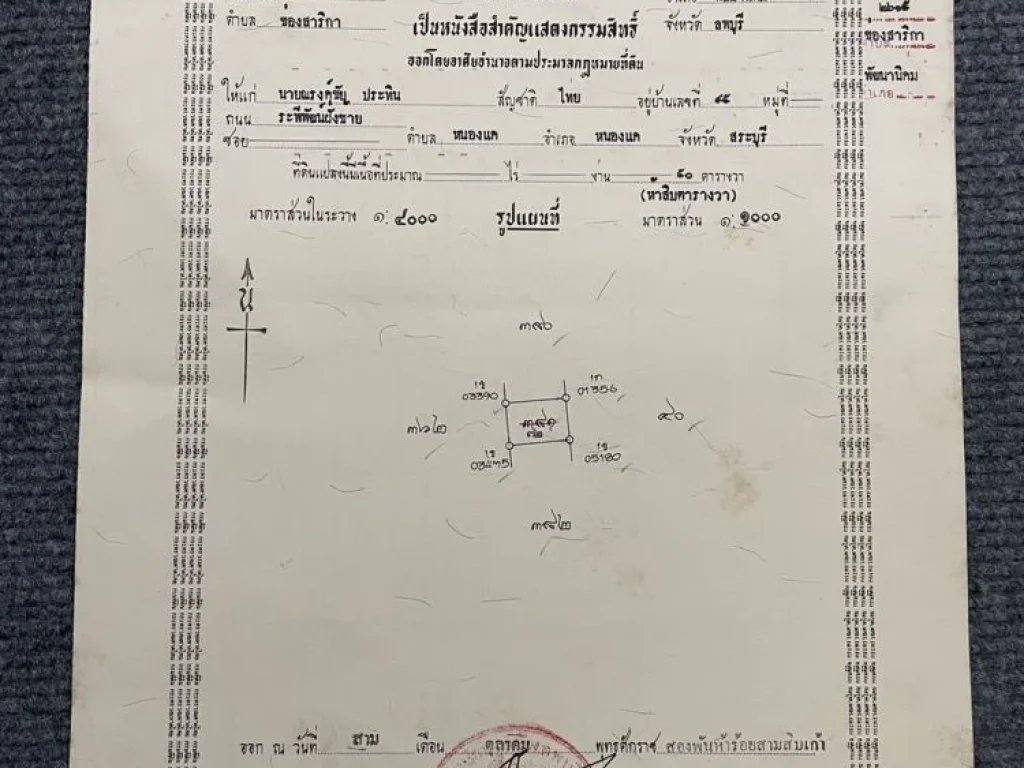 ตำบล ช่องสาริกา จังหวัด ลพบุรี
เป็นหนังสือสำคัญแสดงกรรมสิทธิ์
ออกโดยอาศัยอำนาจตามประมวลกฎหมายที่ดิน
๒๖๑๕
ช่องสาริกา
พัฒนานิคม
ให้แก่ ประทิน สัญชาติ ไทย อยู่บ้านเลขที่ ๕๕ หมู่ที่
ถนน ระพีพัฒน์ฝั่งซ้าย
ซอย ตำบล หนองแค อำเภอ หนองแค จังหวัด สระบุรี
ที่ดินแปลงนี้มีเนื้อที่ประมาณ ไร่ งาน ๕๐ ตารางวา
(ห้าสิบตารางวา)
มาตราส่วนในระวาง ๑: ๔๐๐๐ รูปแผนที่ มาตราส่วน ๑: ๑๐๐๐
น
๓๘๐
03390
01356
๓๖๒
๓๘๑
๗๒
๔๐
03475
05180
๓๘๒
ออก ณ วันที่ สาม เดือน ตุลาคม พุทธศักราช สองพันห้าร้อยสามสิบเก้า